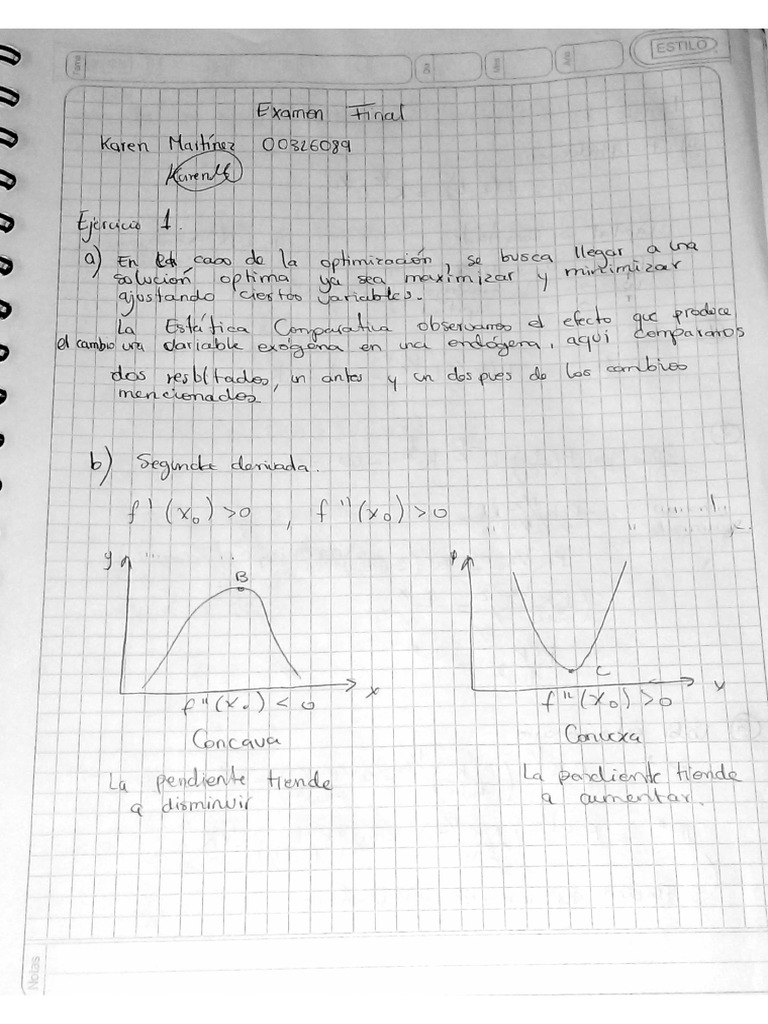 ESTILO
Tema
Día
Mes
Año
Examen Final
Karen Martínez 00326089
Ejercicio 1.
a) En el caso de la optimización, se busca llegar a una
solución optima ya sea maximizar y minimizar
ajustando ciertos variables.
La Estática Comparativa observamos el efecto que produce
el cambio una variable exógena en una endógena, aqui comparamos
dos resultados, un antes y un despues de los cambios
mencionados
b) Segunda derivada.
f'(x₀) >0 , f''(x₀) >0
y
B
x
y
C
x
f''(x₀) < 0
f''(x₀) >0
Concava
Convexa
La pendiente tiende
a disminuir
La pendiente tiende
a aumentar.
Notas